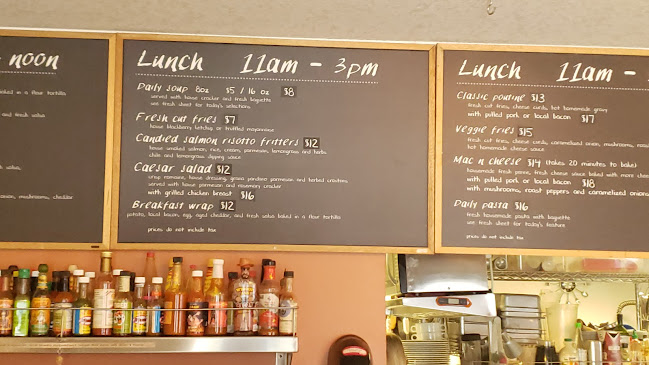 noon
baked in a flour tortilla
and fresh salsa
mushrooms, cheddar
Lunch 11am - 3pm
Daily soup 8oz $5 / 16 oz $8
served with house cracker and fresh baguette
see fresh sheet for today's selections
Fresh cut fries $7
house blackberry ketchup or truffled mayonnaise
Candied salmon risotto fritters $12
house smoked salmon, rice, cream, parmesan, lemongrass and herbs
chile and lemongrass dipping sauce
Caesar salad $12
crisp romaine, house dressing, grana padano parmesan and herbed croutons
served with house parmesan and rosemary cracker
with grilled chicken breast $16
Breakfast wrap $12
potato, local bacon, egg, aged cheddar, and fresh salsa baked in a flour tortilla
prices do not include tax
Lunch 11am -
Classic poutine $13
fresh cut fries, cheese curds, hot homemade gravy
with pulled pork or local bacon $17
Veggie fries $15
fresh cut fries, cheese curds, caramelized onion, mushrooms,
hot homemade cheese sauce
Mac n cheese $14 (takes 20 minutes to bake)
homemade fresh penne, fresh cheese sauce baked with more
with pulled pork or local bacon $18
with mushrooms, roast peppers and caramelized onions
Daily pasta $16
fresh homemade pasta with baguette
see fresh sheet for today's feature
prices do not include tax